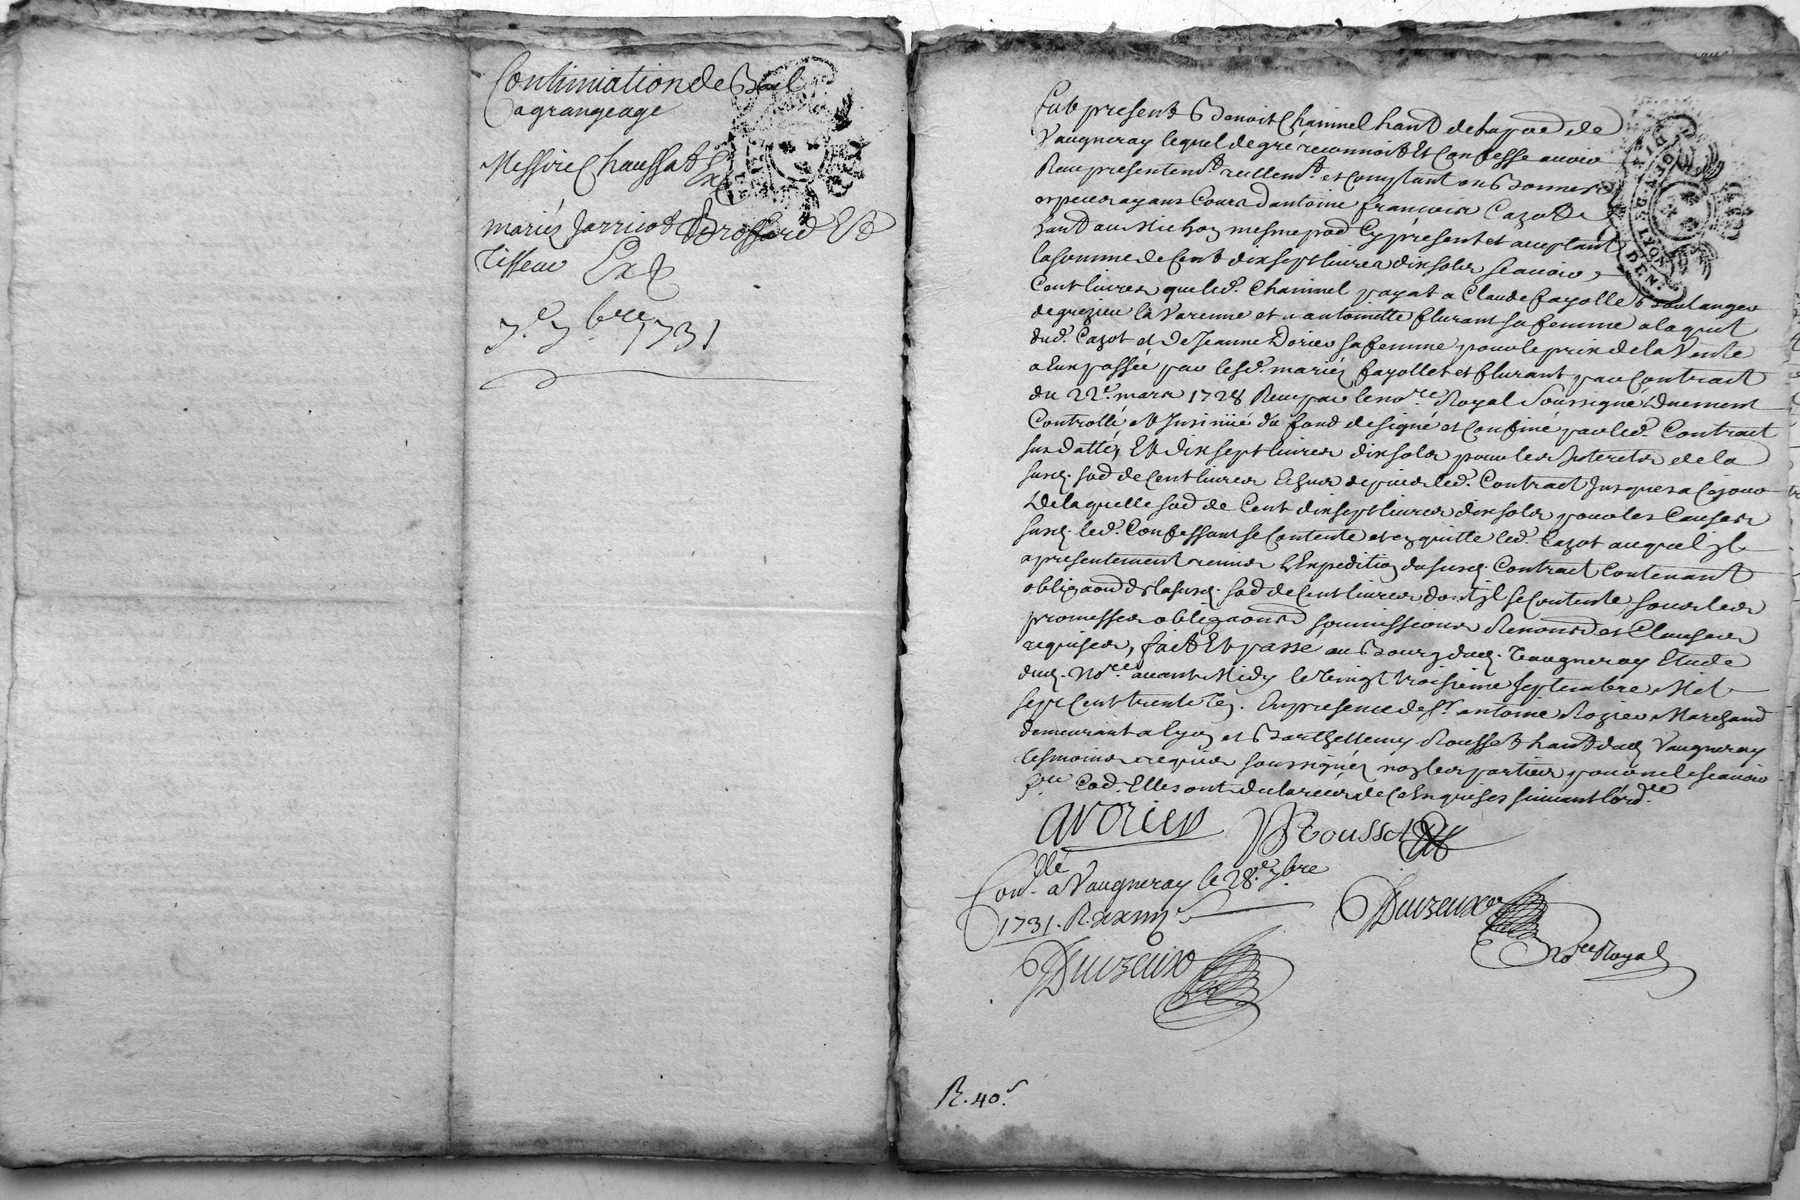 Continuiation de Bail
a grangeage
Messire Chaussat
mariés Jarricot Brossard Et
Tisseur
7.e 7.bre 1731
fut present Benoit Chammel habit de la pad de
Vaugneray lequel de gré reconnoit Et Confesse avoir
Reçu presentemt reellemt et comptant en Bonnes
especes ayans Cours dantoine francois Cazot
habt au Michon mesme pad Cy present et acceptant
la somme de Cent dix sept livres dix sols scavoir
Cent livres que led. Chammel payat a Claude fayolle Boulanger
de grezieu la Varenne et antoinette flurant sa femme a laquit
dud. Cazot et de Jeanne Dorier sa femme pour le prix de la Vente
a Eux passée par lesd. mariés fayolle et flurant par Contract
du 22.e mars 1728 Reçu par le no.re Royal Soussigné Duement
Controllé et Insinué du fond designé et Confiné par led. Contract
sus datté, Et dix sept livres dix sols pour les Interets de la
susd. sad de Cent livres Echus depuis led. Contract Jusques a Ce jour
De laquelle sad de Cent dix sept livres dix sols pour les Causes
susd. led. Confessant se Contente et en quitte led. Cazot auquel Il
a presentement remis lExpedition du susd. Contract Contenant
obligaond de la susd. sad de Cent livres dont Il se Contente sous les
promesses obligaons soumissions Renonds et Clauses
requises, fait Et passé au Bourg dud. Vaugneray Etude
dud. No.re avant Midy le Vingt troisieme septembre Mil
sept Cent trente Un. En presence de Sr. antoine Rozier Marchand
demeurant a lyon et Barthellemy Rousset habt dud Vaugneray
tesmoins requis soussignés non les parties pour ne le scavoir
Elles ont declaré de ce Enquises suivant lord.ce
Rousset
Con.llé a Vaugneray le 28.e 7bre
1731. R.
Duizeux
Duizeux
No.re Royal
R. 40.s